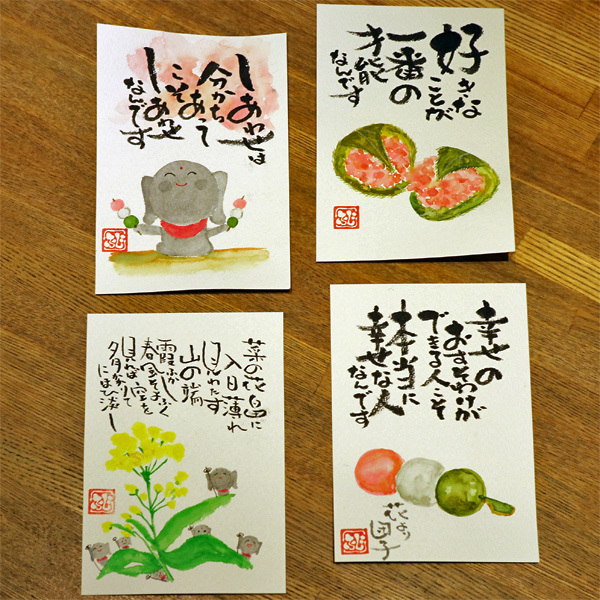 しあわせは
分かちあって
こそ
しあわせ
なんです
好きな
ことが
一番の
才能
なんです
菜の花畠に
入日薄れ
見わたす
山の端
霞ふかし
春風そよふく
空を
見れば
夕月かかりて
にほひ淡し
幸せの
おすそわけが
できる人こそ
本当に
幸せな人
なんです
花より
団子